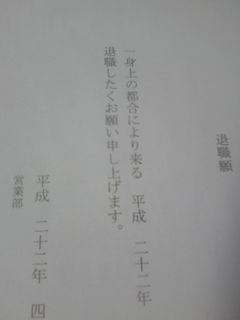 退職願
一身上の都合により来る 平成 二十二年
退職したくお願い申し上げます。
平成 二十二年 四
営業部